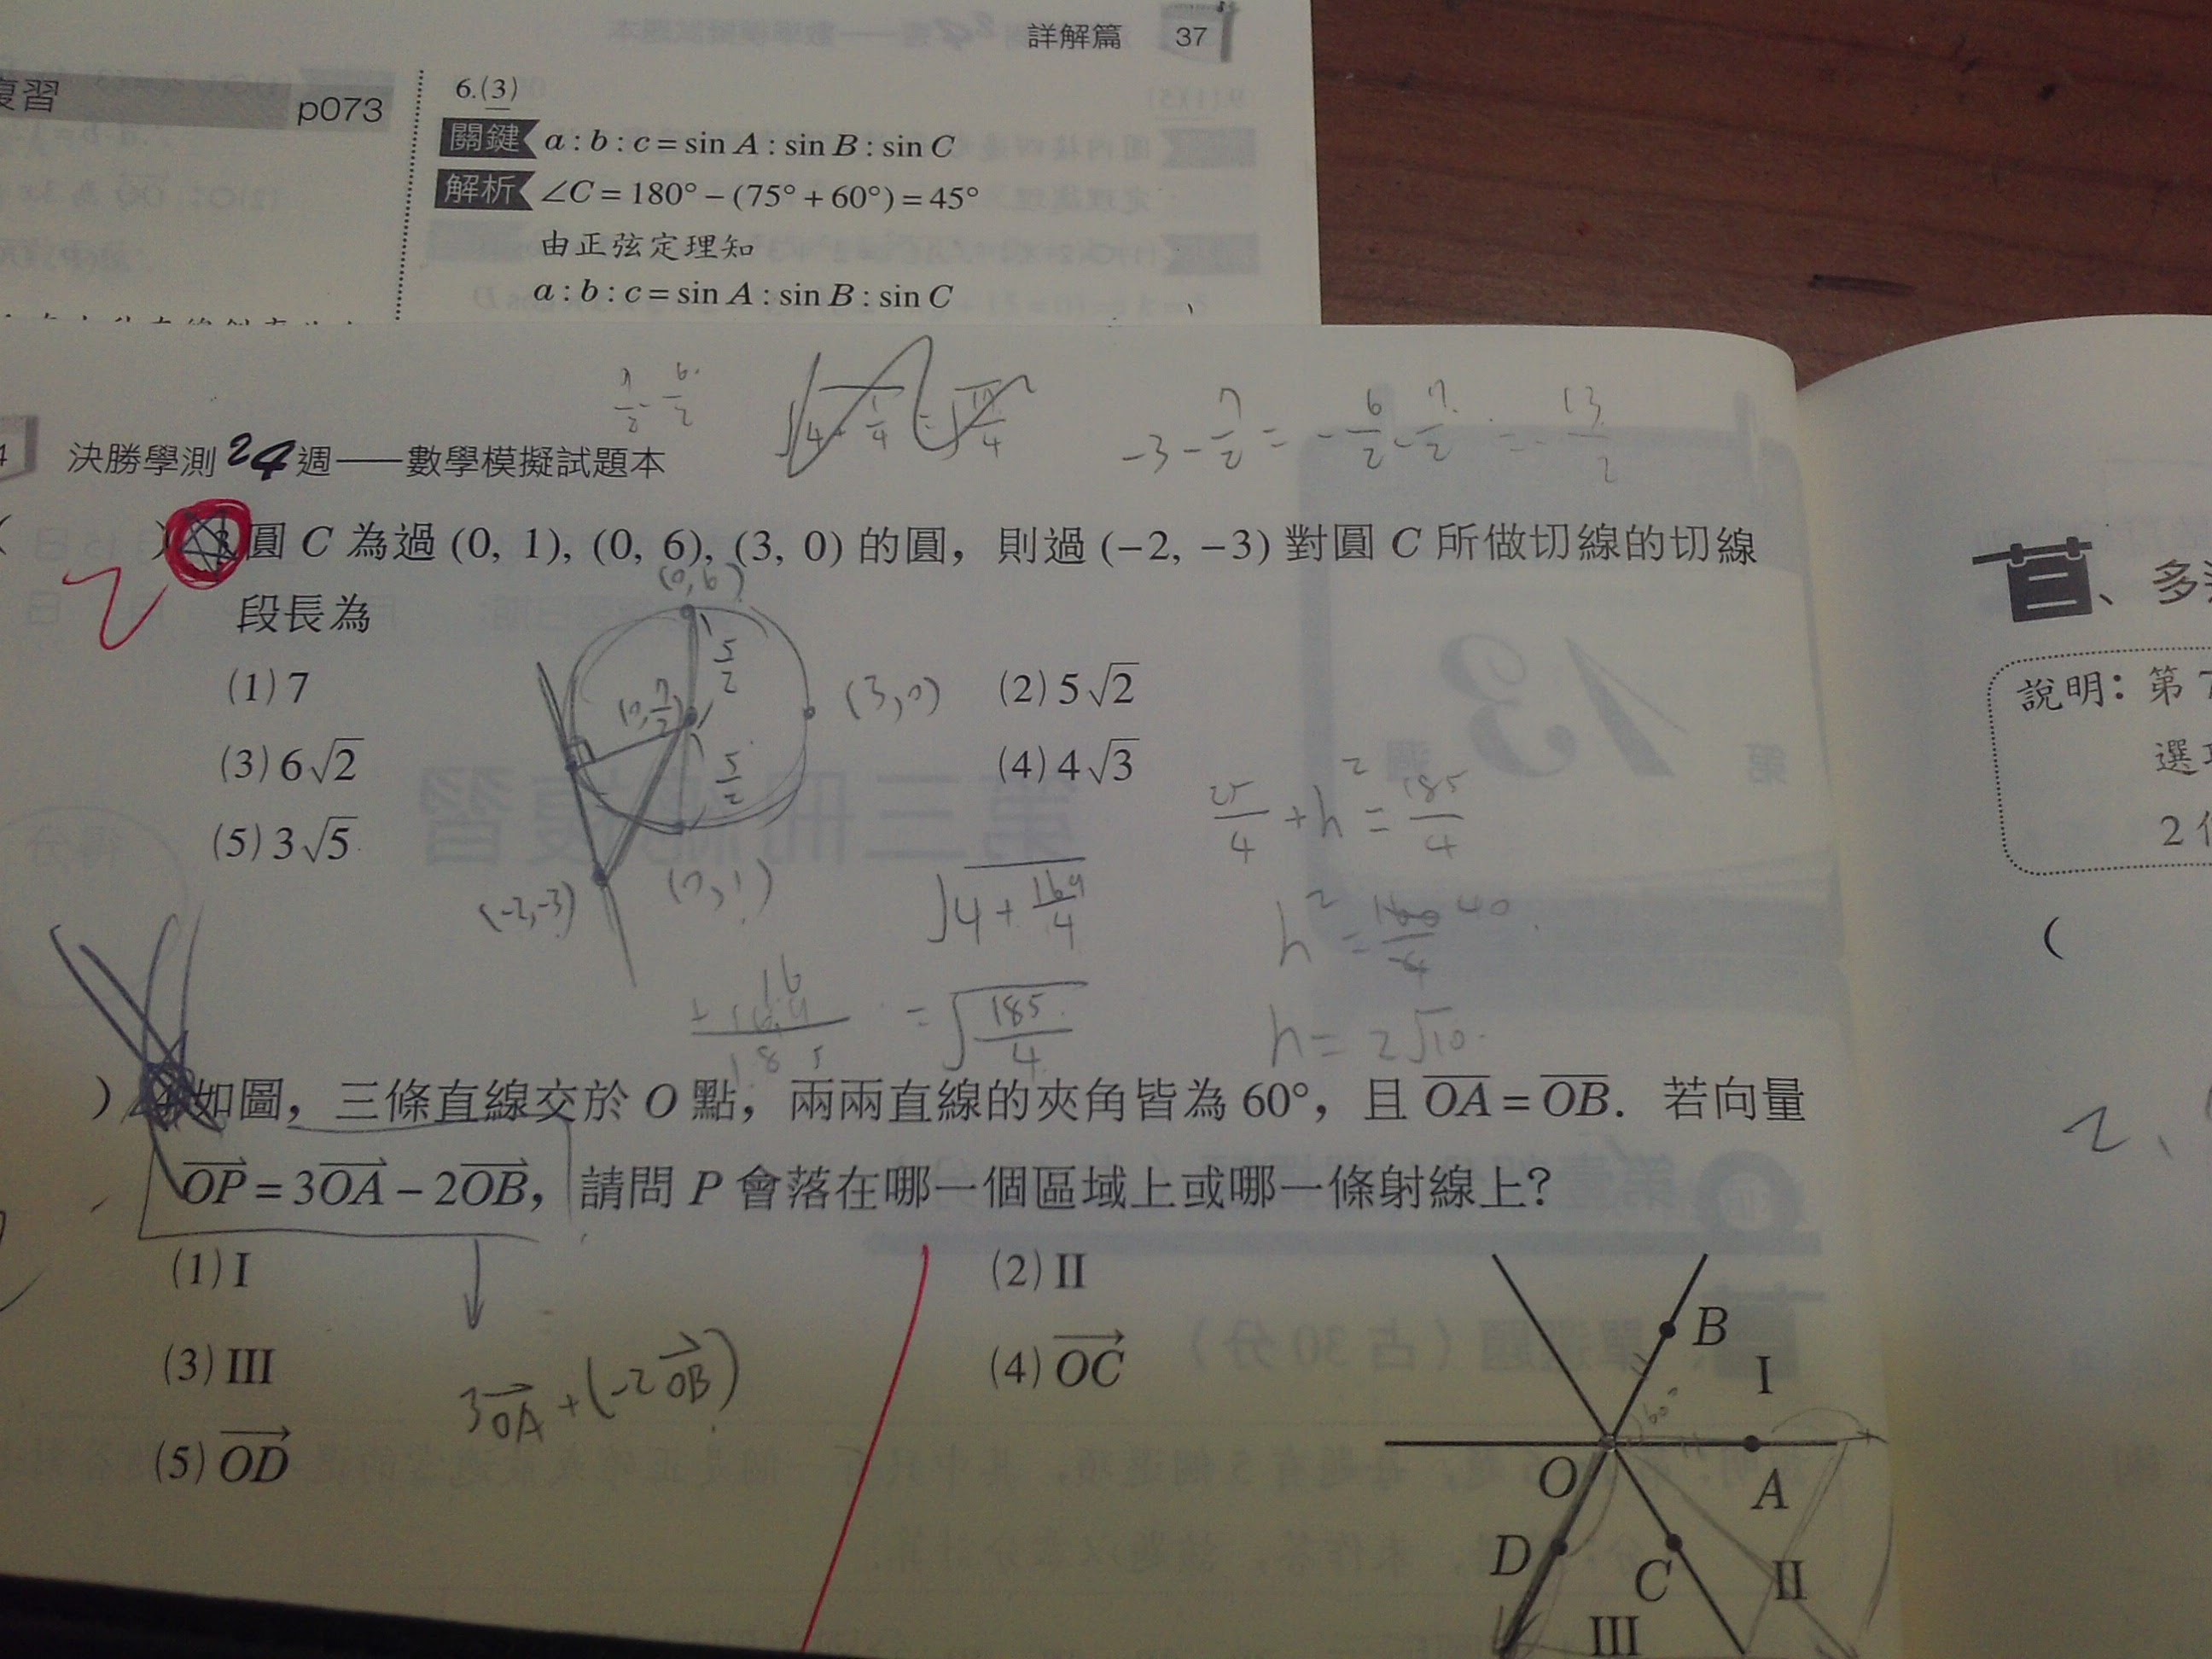 詳解篇 37
複習 p073
6.(3)
關鍵 a : b : c = sin A : sin B : sin C
解析 ∠C = 180° − (75° + 60°) = 45°
由正弦定理知
a : b : c = sin A : sin B : sin C
4 決勝學測24週——數學模擬試題本
7/2 - 6/2
-3 - 7/2 = - 6/2 - 7/2 = - 13/2
( ) 圓 C 為過 (0, 1), (0, 6), (3, 0) 的圓，則過 (−2, −3) 對圓 C 所做切線的切線
段長為
(1) 7
(2) 5√2
(3) 6√2
(4) 4√3
(5) 3√5
(0,6)
5/2
(0,7/2)
(3,0)
5/2
(-2,-3)
√(4 + 169/4)
= √(185/4)
16
+ 169
185
25/4 + h² = 185/4
h² = 40
h = 2√10
) 如圖，三條直線交於 O 點，兩兩直線的夾角皆為 60°，且 OA = OB．若向量
OP = 3OA − 2OB，請問 P 會落在哪一個區域上或哪一條射線上？
(1) I
(2) II
(3) III
(4) OC
(5) OD
3OA + (-2OB)
B
I
60°
O
A
D
C
II
III
二、多
說明：第 7
選項
2 個
(
2、